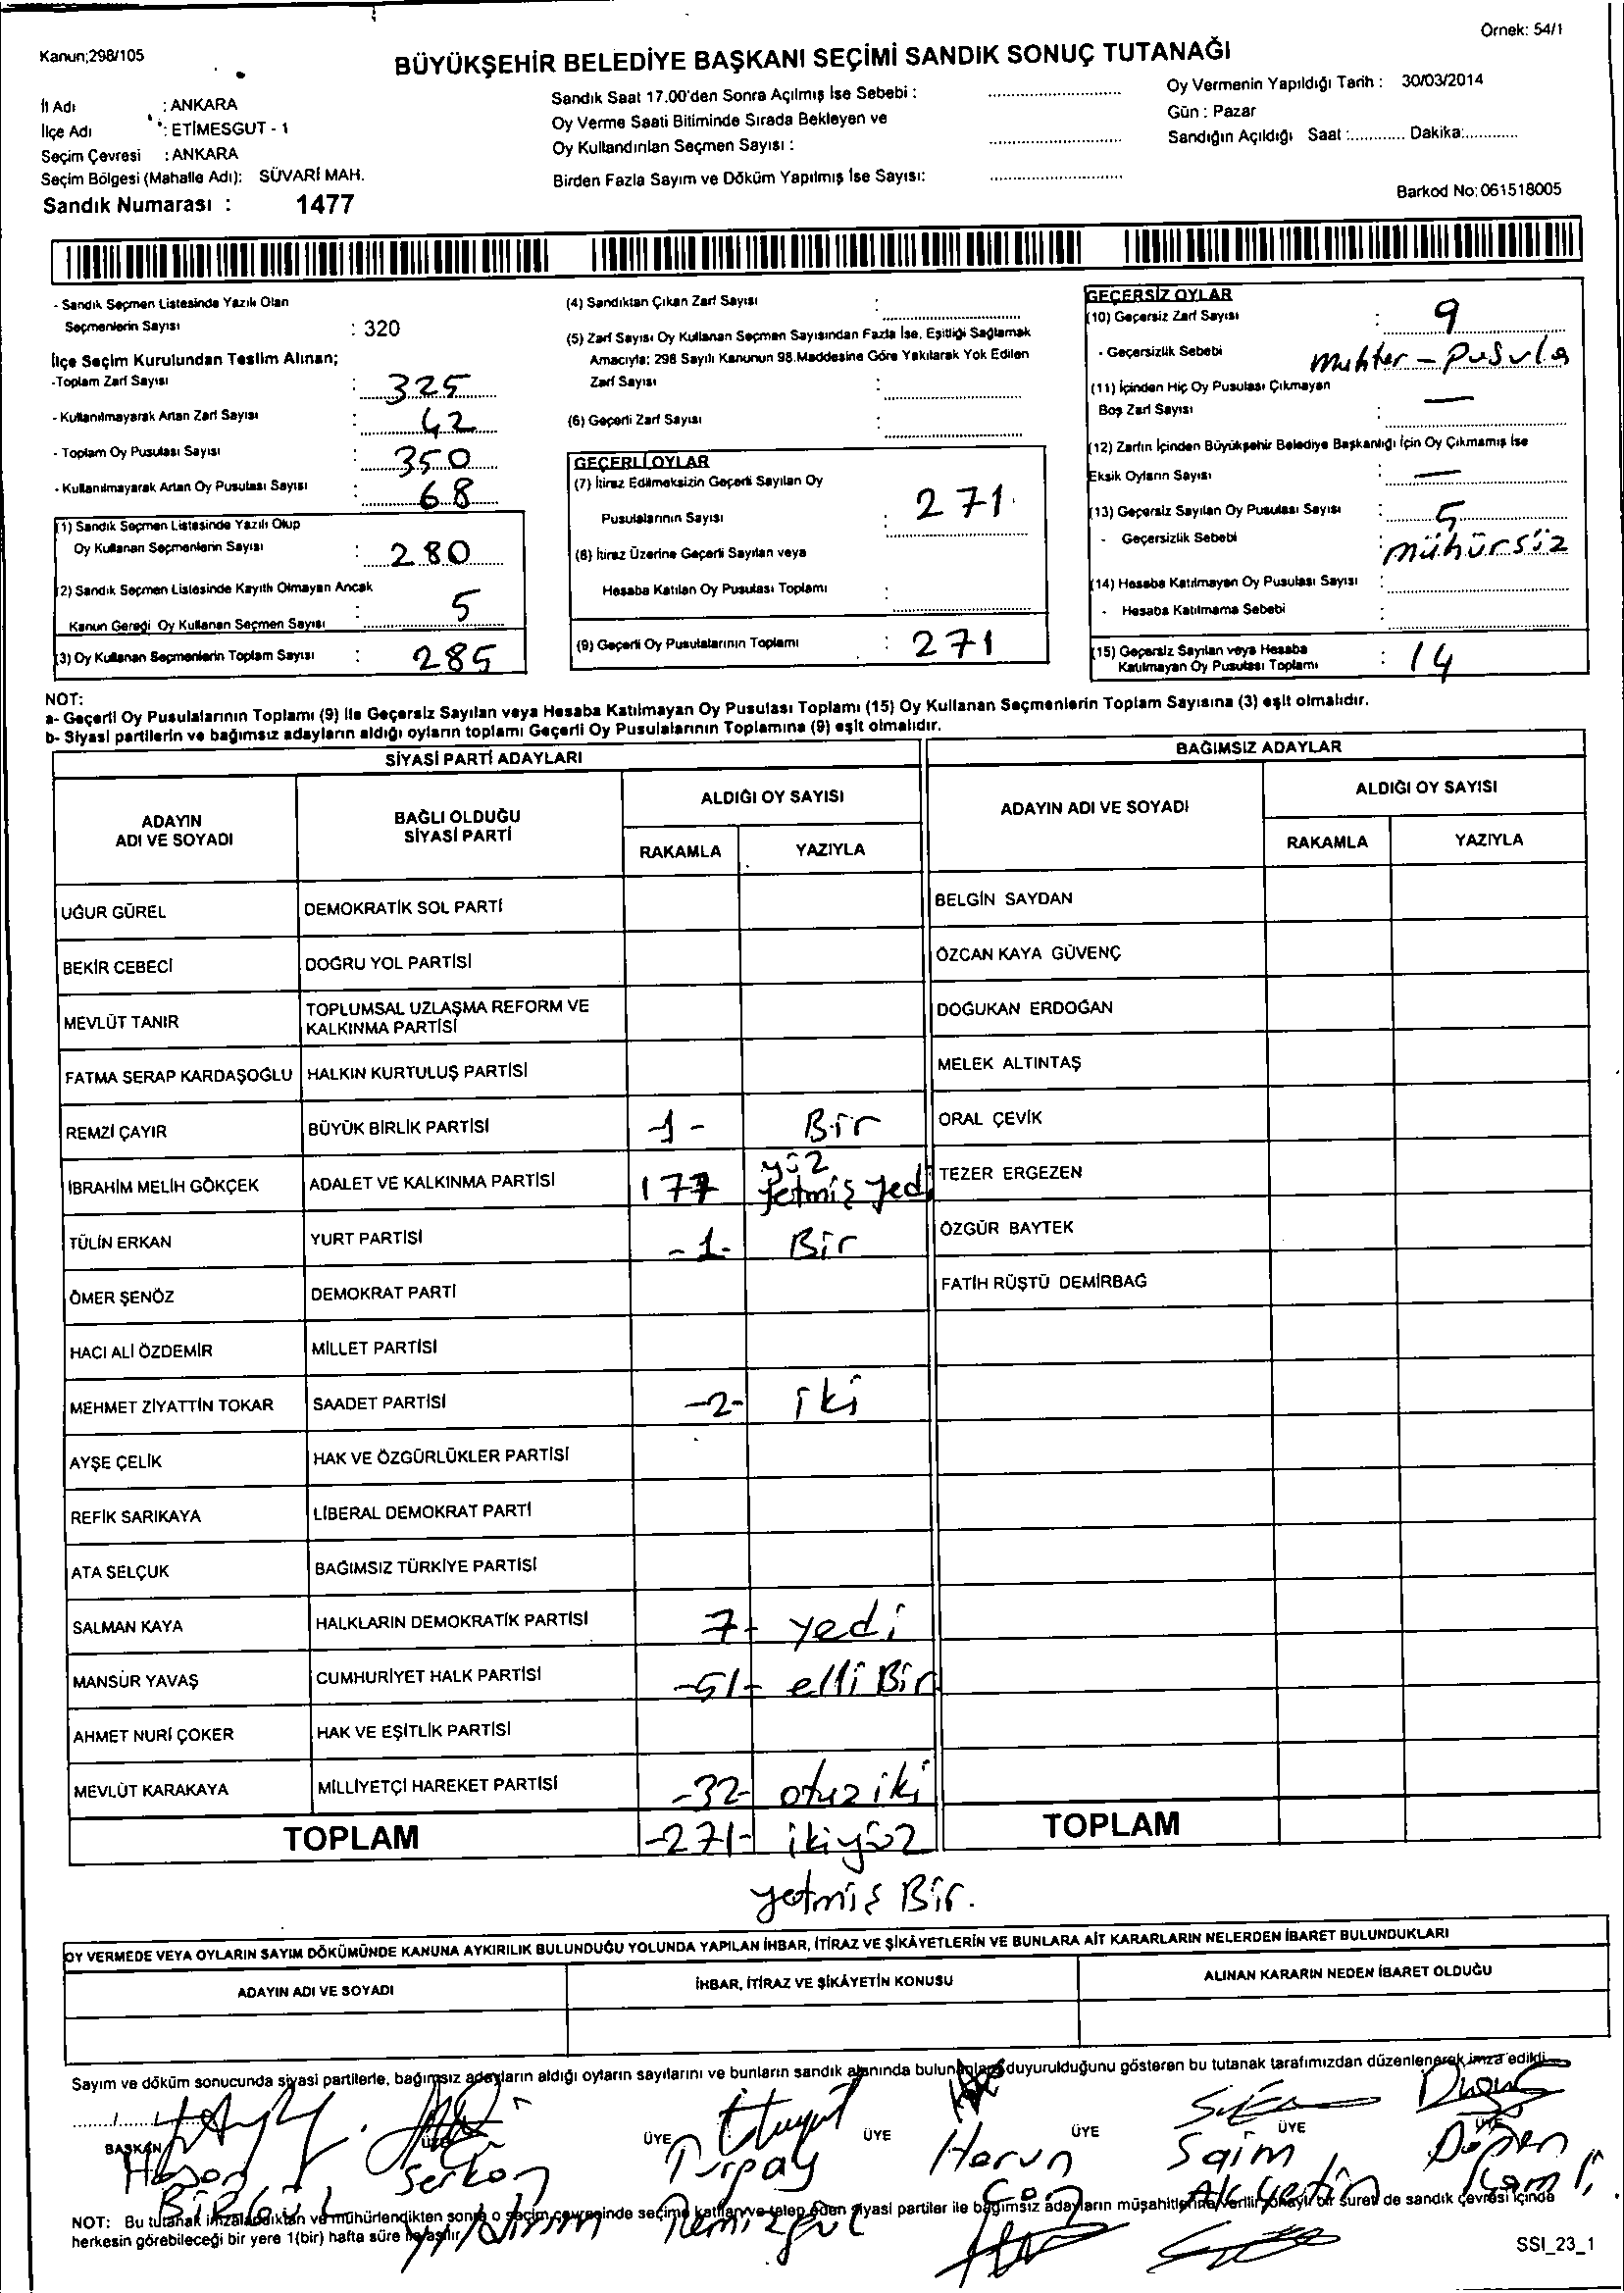 Örnek: 54/1
Kanun;298/105
BÜYÜKŞEHİR BELEDİYE BAŞKANI SEÇİMİ SANDIK SONUÇ TUTANAĞI
İl Adı : ANKARA
İlçe Adı : ETİMESGUT - 1
Seçim Çevresi : ANKARA
Seçim Bölgesi (Mahalle Adı): SÜVARİ MAH.
Sandık Numarası : 1477
Sandık Saat 17.00'den Sonra Açılmış İse Sebebi : ..............................
Oy Verme Saati Bitiminde Sırada Bekleyen ve
Oy Kullandırılan Seçmen Sayısı : ..............................
Birden Fazla Sayım ve Döküm Yapılmış İse Sayısı: ..............................
Oy Vermenin Yapıldığı Tarih : 30/03/2014
Gün : Pazar
Sandığın Açıldığı Saat :............ Dakika:............
Barkod No: 061518005
- Sandık Seçmen Listesinde Yazılı Olan
Seçmenlerin Sayısı : 320
İlçe Seçim Kurulundan Teslim Alınan;
-Toplam Zarf Sayısı : 325
- Kullanılmayarak Artan Zarf Sayısı : 42
- Toplam Oy Pusulası Sayısı : 350
- Kullanılmayarak Artan Oy Pusulası Sayısı : 68
(1) Sandık Seçmen Listesinde Yazılı Olup
Oy Kullanan Seçmenlerin Sayısı : 280
(2) Sandık Seçmen Listesinde Kayıtlı Olmayan Ancak
Kanun Gereği Oy Kullanan Seçmen Sayısı : 5
(3) Oy Kullanan Seçmenlerin Toplam Sayısı : 285
(4) Sandıktan Çıkan Zarf Sayısı :
(5) Zarf Sayısı Oy Kullanan Seçmen Sayısından Fazla İse, Eşitliği Sağlamak
Amacıyla; 298 Sayılı Kanunun 98.Maddesine Göre Yakılarak Yok Edilen
Zarf Sayısı :
(6) Geçerli Zarf Sayısı :
GEÇERLİ OYLAR
(7) İtiraz Edilmeksizin Geçerli Sayılan Oy
Pusulalarının Sayısı : 271
(8) İtiraz Üzerine Geçerli Sayılan veya
Hesaba Katılan Oy Pusulası Toplamı :
(9) Geçerli Oy Pusulalarının Toplamı : 271
GEÇERSİZ OYLAR
(10) Geçersiz Zarf Sayısı : 9
- Geçersizlik Sebebi muhter - pusula
(11) İçinden Hiç Oy Pusulası Çıkmayan
Boş Zarf Sayısı : —
(12) Zarfın İçinden Büyükşehir Belediye Başkanlığı İçin Oy Çıkmamış İse
Eksik Oyların Sayısı : —
(13) Geçersiz Sayılan Oy Pusulası Sayısı : 5
- Geçersizlik Sebebi : mühürsüz
(14) Hesaba Katılmayan Oy Pusulası Sayısı :
- Hesaba Katılmama Sebebi :
(15) Geçersiz Sayılan veya Hesaba
Katılmayan Oy Pusulası Toplamı : 14
NOT:
a- Geçerli Oy Pusulalarının Toplamı (9) ile Geçersiz Sayılan veya Hesaba Katılmayan Oy Pusulası Toplamı (15) Oy Kullanan Seçmenlerin Toplam Sayısına (3) eşit olmalıdır.
b- Siyasi partilerin ve bağımsız adayların aldığı oyların toplamı Geçerli Oy Pusulalarının Toplamına (9) eşit olmalıdır.
SİYASİ PARTİ ADAYLARI
ADAYIN ADI VE SOYADI BAĞLI OLDUĞU SİYASİ PARTİ ALDIĞI OY SAYISI
RAKAMLA YAZIYLA
UĞUR GÜREL DEMOKRATİK SOL PARTİ
BEKİR CEBECİ DOĞRU YOL PARTİSİ
MEVLÜT TANIR TOPLUMSAL UZLAŞMA REFORM VE KALKINMA PARTİSİ
FATMA SERAP KARDAŞOĞLU HALKIN KURTULUŞ PARTİSİ
REMZİ ÇAYIR BÜYÜK BİRLİK PARTİSİ -1- Bir
İBRAHİM MELİH GÖKÇEK ADALET VE KALKINMA PARTİSİ 177 yüz yetmiş yedi
TÜLİN ERKAN YURT PARTİSİ -1- Bir
ÖMER ŞENÖZ DEMOKRAT PARTİ
HACI ALİ ÖZDEMİR MİLLET PARTİSİ
MEHMET ZİYATTİN TOKAR SAADET PARTİSİ -2- iki
AYŞE ÇELİK HAK VE ÖZGÜRLÜKLER PARTİSİ
REFİK SARIKAYA LİBERAL DEMOKRAT PARTİ
ATA SELÇUK BAĞIMSIZ TÜRKİYE PARTİSİ
SALMAN KAYA HALKLARIN DEMOKRATİK PARTİSİ 7- yedi
MANSUR YAVAŞ CUMHURİYET HALK PARTİSİ -51- elli Bir
AHMET NURİ ÇOKER HAK VE EŞİTLİK PARTİSİ
MEVLÜT KARAKAYA MİLLİYETÇİ HAREKET PARTİSİ -32- otuz iki
TOPLAM -271- ikiyüz
yetmiş Bir.
BAĞIMSIZ ADAYLAR
ADAYIN ADI VE SOYADI ALDIĞI OY SAYISI
RAKAMLA YAZIYLA
BELGİN SAYDAN
ÖZCAN KAYA GÜVENÇ
DOĞUKAN ERDOĞAN
MELEK ALTINTAŞ
ORAL ÇEVİK
TEZER ERGEZEN
ÖZGÜR BAYTEK
FATİH RÜŞTÜ DEMİRBAĞ
TOPLAM
OY VERMEDE VEYA OYLARIN SAYIM DÖKÜMÜNDE KANUNA AYKIRILIK BULUNDUĞU YOLUNDA YAPILAN İHBAR, İTİRAZ VE ŞİKÂYETLERİN VE BUNLARA AİT KARARLARIN NELERDEN İBARET BULUNDUKLARI
ADAYIN ADI VE SOYADI İHBAR, İTİRAZ VE ŞİKÂYETİN KONUSU ALINAN KARARIN NEDEN İBARET OLDUĞU
Sayım ve döküm sonucunda siyasi partilerle, bağımsız adayların aldığı oyların sayılarını ve bunların sandık alanında bulunanlara duyurulduğunu gösteren bu tutanak tarafımızdan düzenlenerek imza edildi.
....../......
BAŞKAN ÜYE ÜYE ÜYE ÜYE ÜYE ÜYE
Hasan Serkan Turpay Harun Saim Dönen
Birgül Yıldırım Remizgül Can Akçetin Kamil
NOT: Bu tutanak imzalandıktan ve mühürlendikten sonra o seçim çevresinde seçime katılan ve talep eden siyasi partiler ile bağımsız adayların müşahitlerine verilir, onaylı bir sureti de sandık çevresi içinde
herkesin görebileceği bir yere 1(bir) hafta süre ile asılır.
SSI_23_1